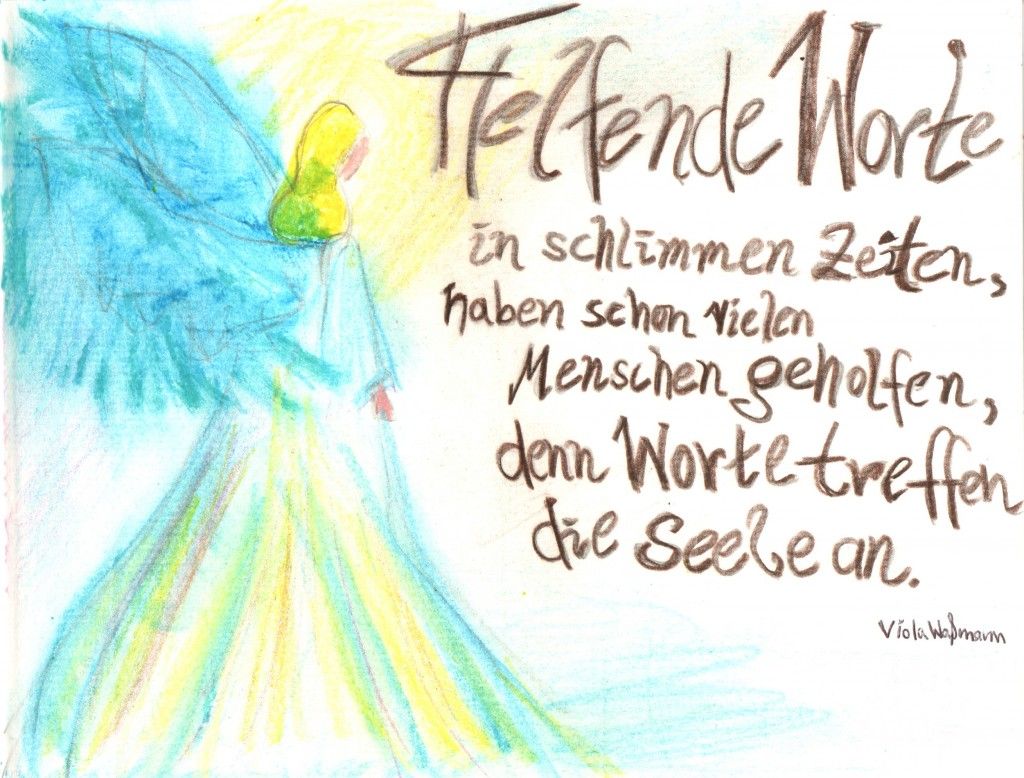 Helfende Worte
in schlimmen Zeiten,
haben schon vielen
Menschen geholfen,
denn Worte treffen
die Seele an.
Viola Waßmann